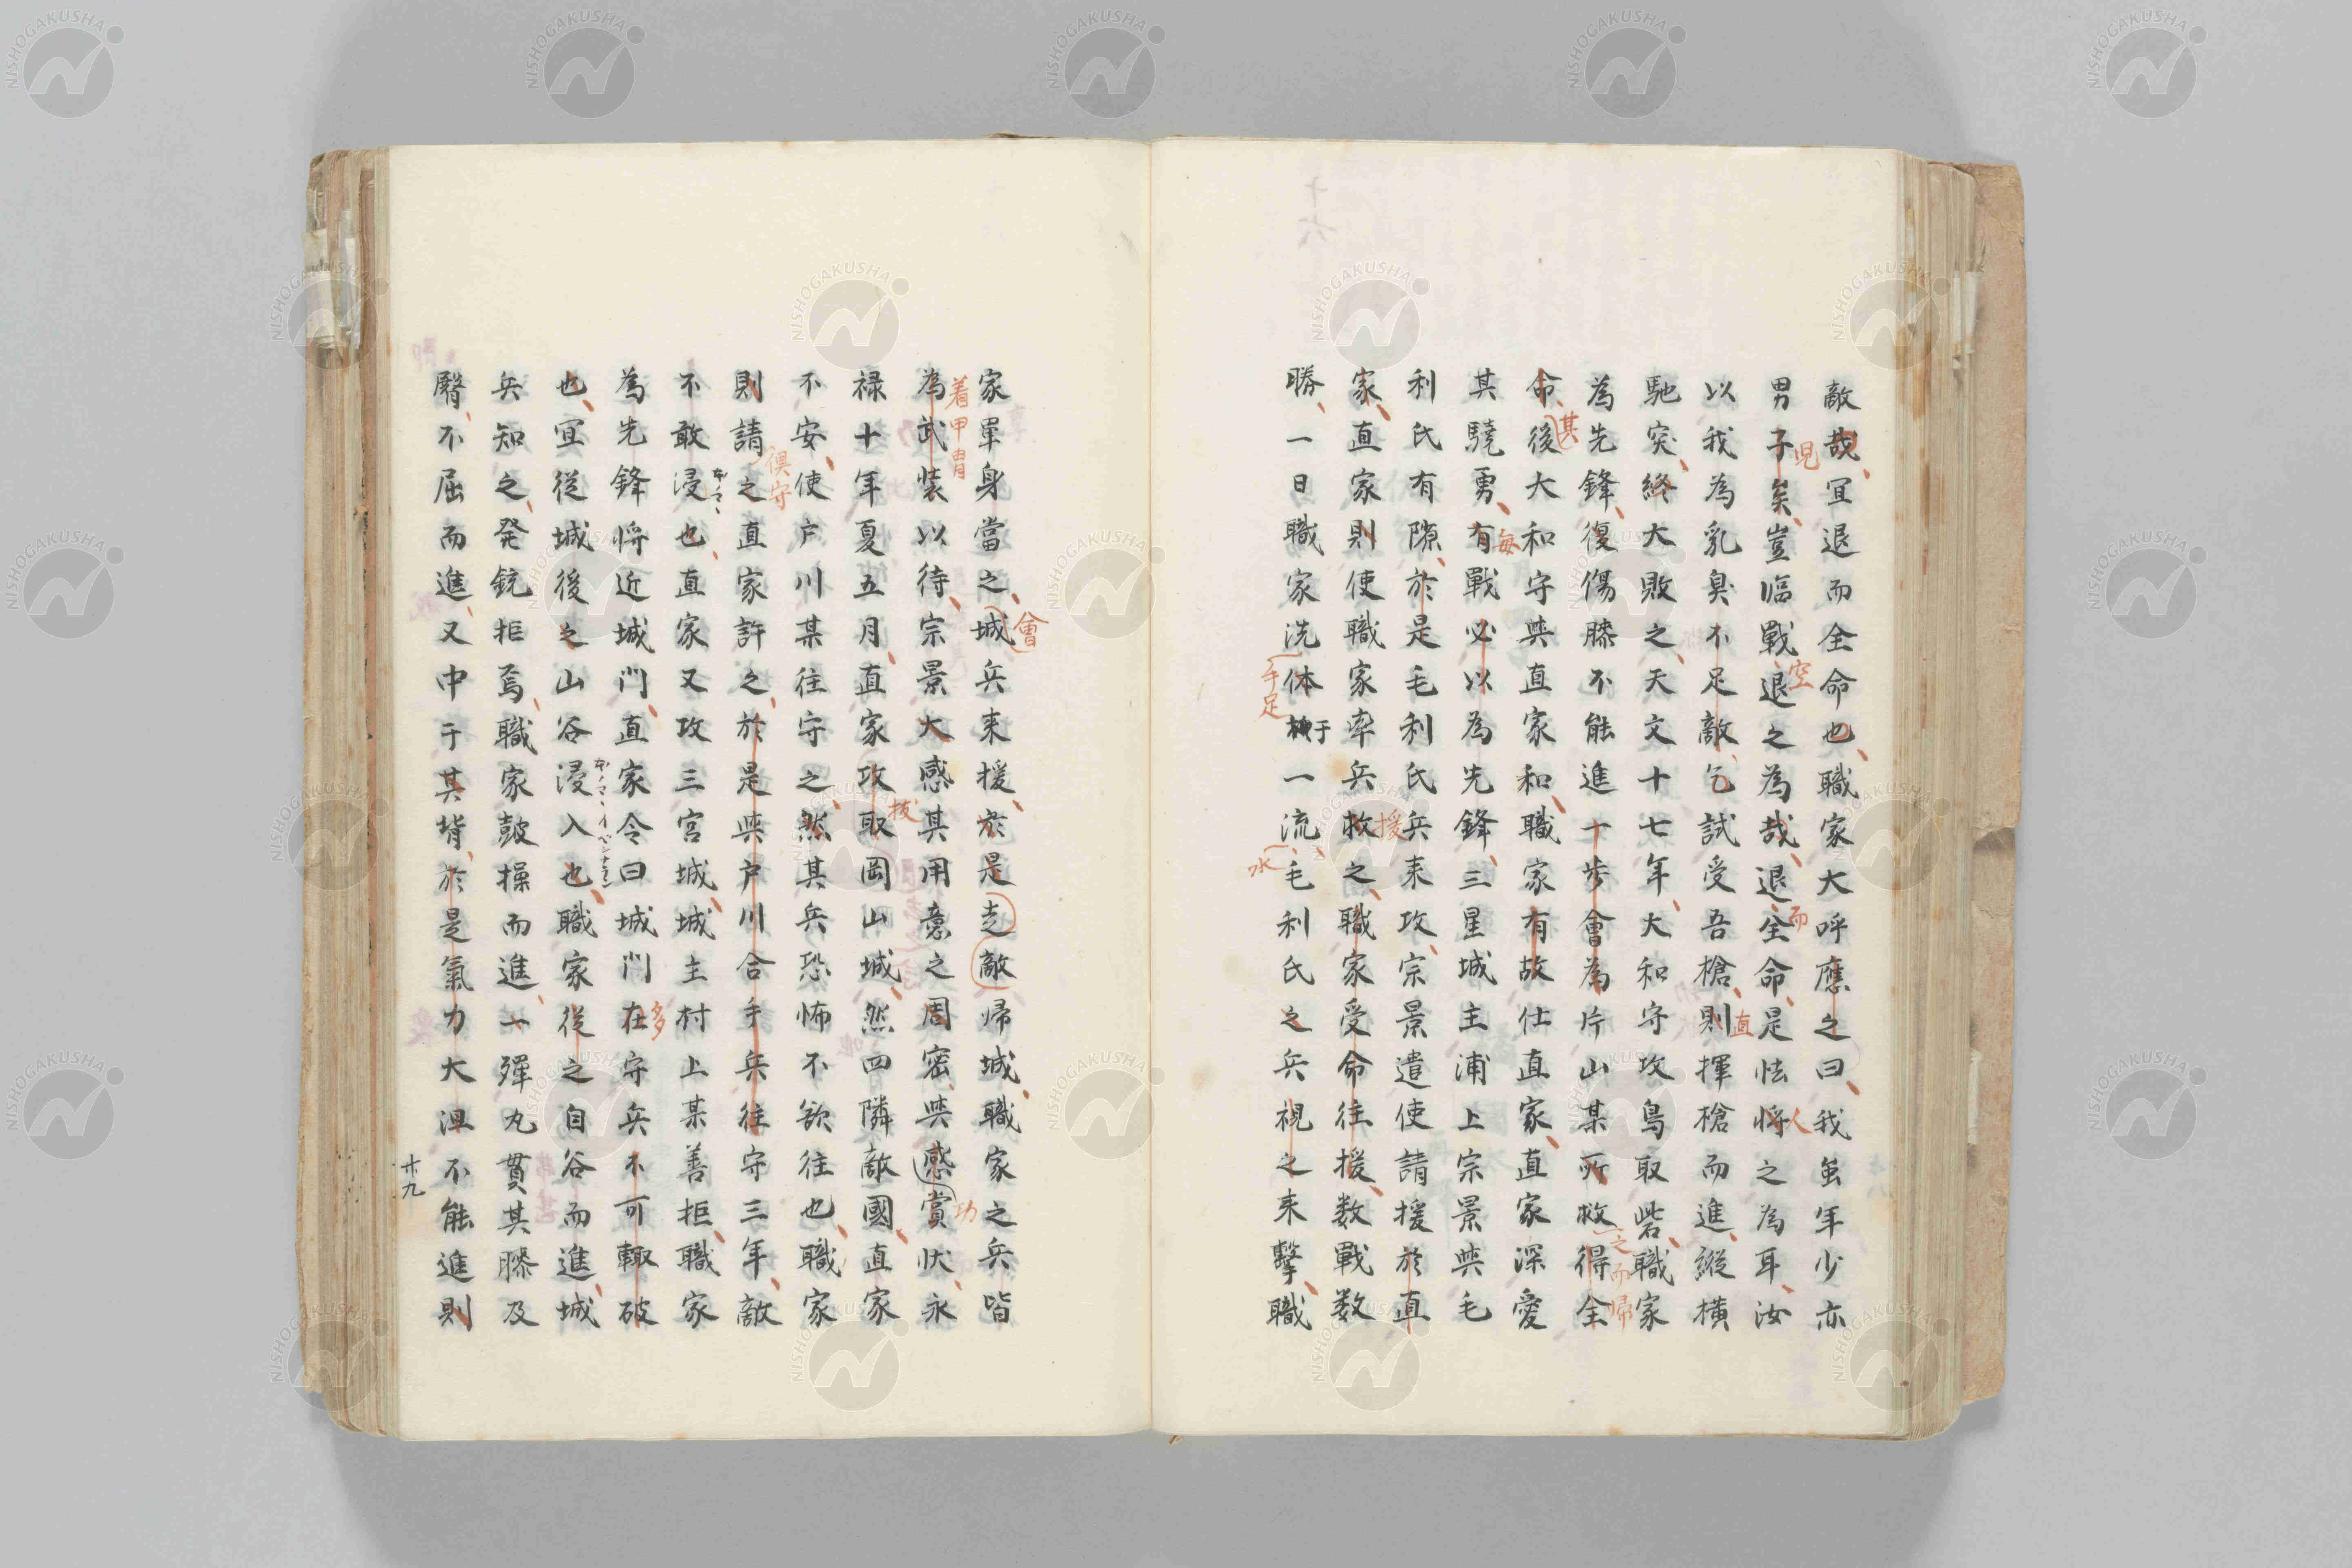 敵哉冝退而全命也職家大呼應之曰我虽年少亦
男子矣豈臨戰退之為哉退全命是怯将之為耳汝
児
空
而
人
以我為乳臭不足敵乞試受吾槍則揮槍而進縦横
直
馳突終大敗之天文十七年大和守攻鳥取砦職家
為先鋒復傷膝不能進一歩會為片山某所救得全
之而帰
命後大和守與直家和職家有故仕直家直家深愛
其
其驍勇有戰必以為先鋒三星城主浦上宗景與毛
毎
利氏有隙於是毛利氏兵来攻宗景遣使請援於直
家直家則使職家率兵救之職家受命往援数戰数
援
勝一日職家洗体於于一流毛利氏之兵視之来擊職
手足
水
家單身當之城兵来援於是走敵帰城職家之兵皆
會
為武装以待宗景大感其用意之周密與感賞状永
着甲冑
功
禄十年夏五月直家攻取岡山城然四隣敵國直家
抜
不安使戸川某往守之然其兵恐怖不欲往也職家
則請之直家許之於是與戸川合手兵往守三年敵
倶守
不敢浸也直家又攻三宮城城主村上某善拒職家
本ノマヽ
為先鋒将近城門直家令曰城門在守兵不可輙破
多
也冝従城後之山谷浸入也職家従之自谷而進城
兵知之発銃拒焉職家鼓操而進一彈丸貫其膝及
臀不屈而進又中于其背於是氣力大沮不能進則
十九